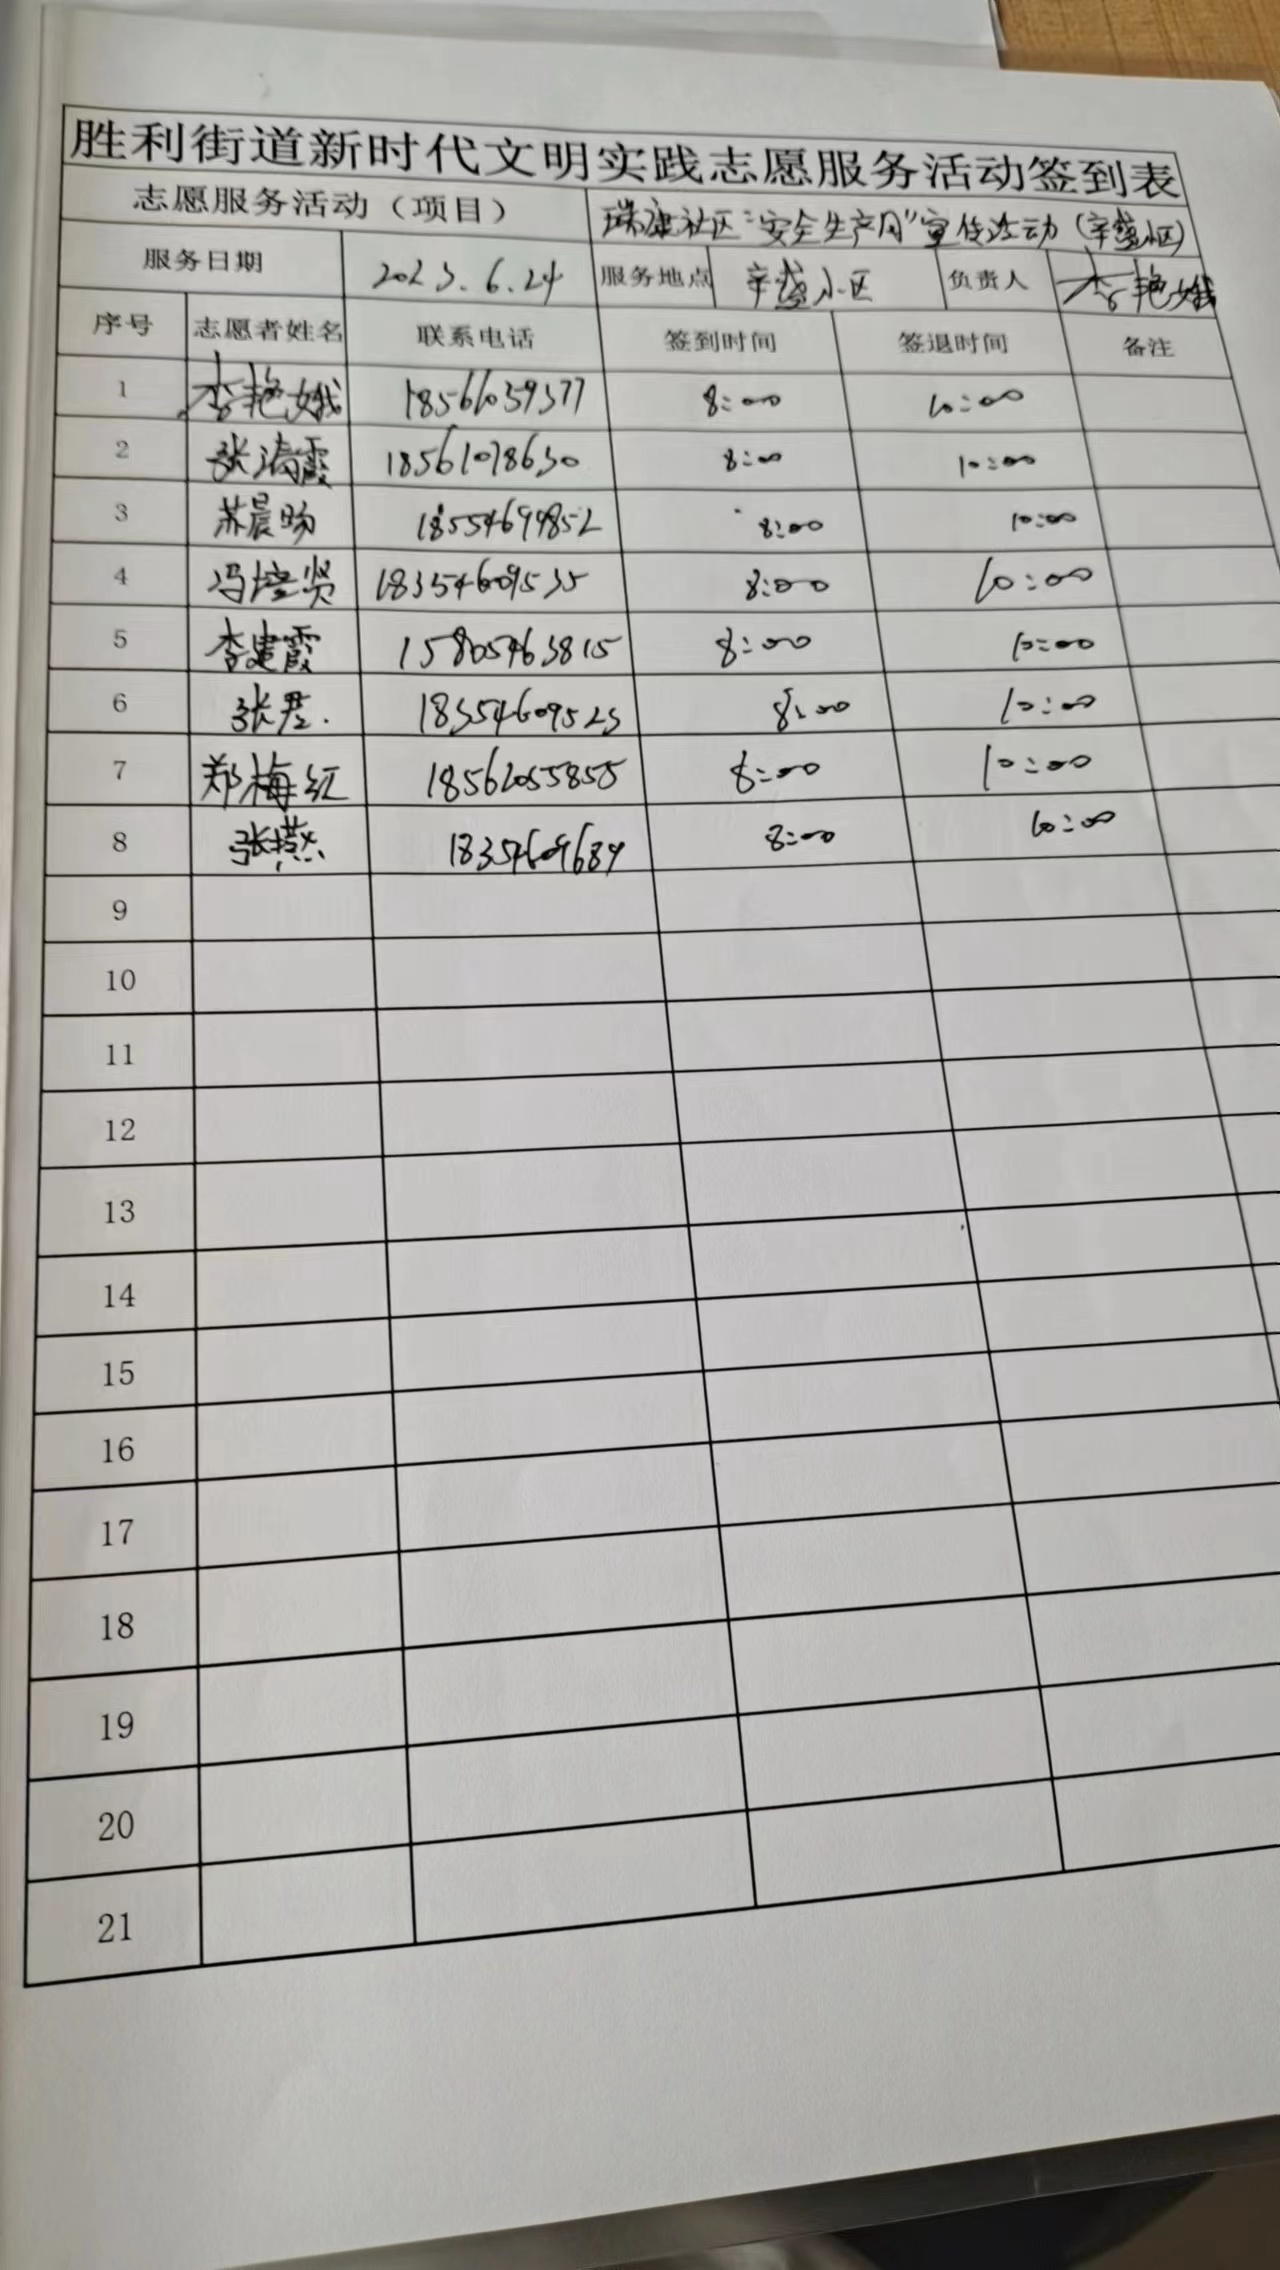 胜利街道新时代文明实践志愿服务活动签到表
志愿服务活动（项目） 瑞康社区“安全生产月”宣传活动（辛盛小区）
服务日期 2023.6.24 服务地点 辛盛小区 负责人 李艳娥
序号 志愿者姓名 联系电话 签到时间 签退时间 备注
1 李艳娥 18566039377 8:00 10:00
2 张海霞 18561078630 8:00 10:00
3 苏晨旸 18554699852 8:00 10:00
4 冯培贤 18354609535 8:00 10:00
5 李建霞 15805463815 8:00 10:00
6 张君 18354609523 8:00 10:00
7 郑梅红 18562055855 8:00 10:00
8 张燕 18354609689 8:00 10:00
9
10
11
12
13
14
15
16
17
18
19
20
21